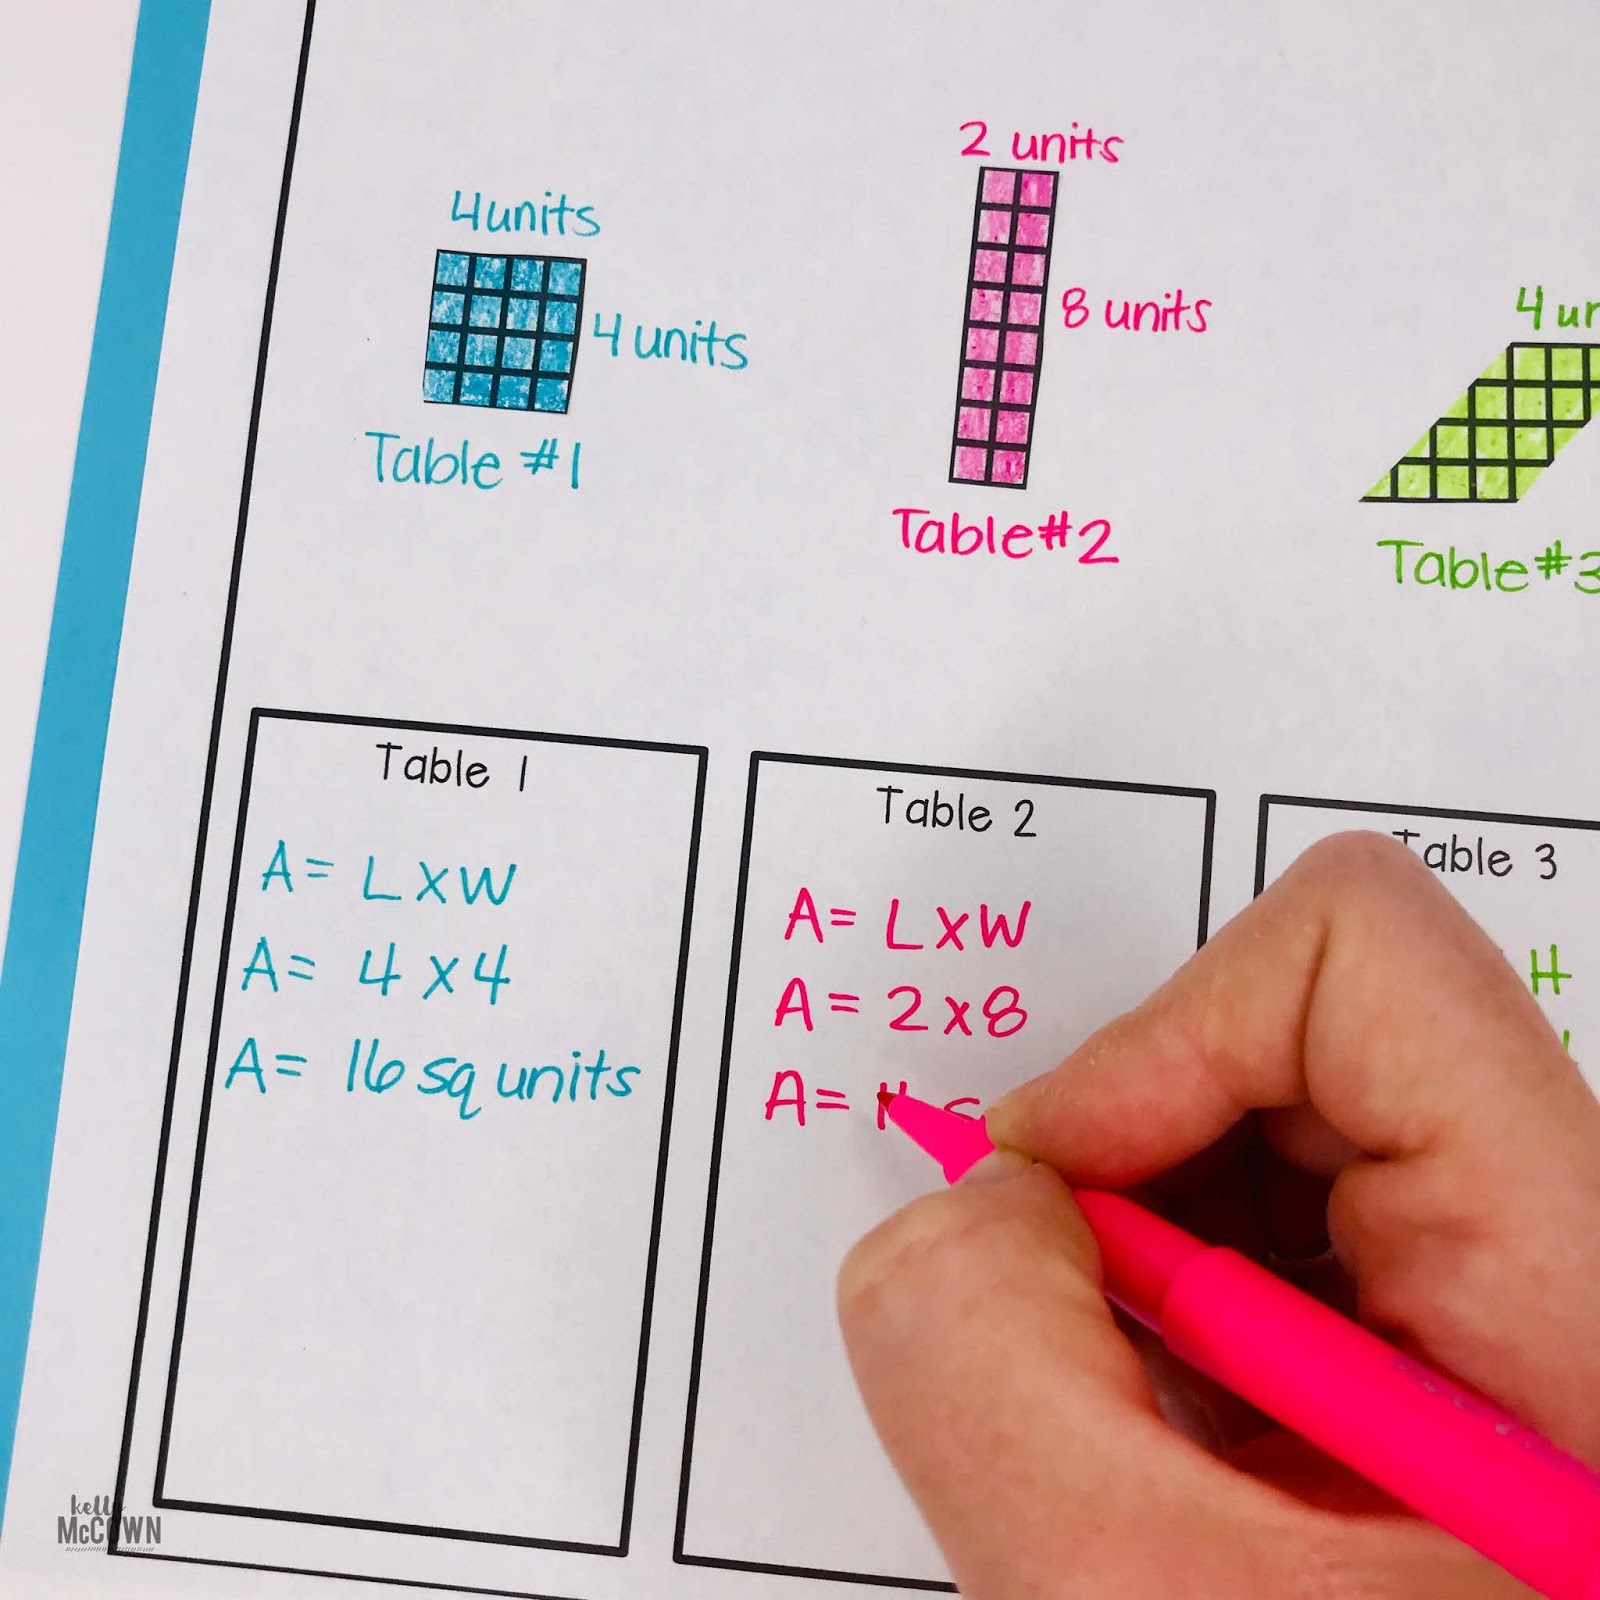 2 units
4 units
8 units
4 units
4
Table #1
Table #2
Table #3
Table 1
A = L x W
A = 4 x 4
A = 16 sq units
Table 2
A = L x W
A = 2 x 8
A =
Table 3
H
kelly
McCOWN